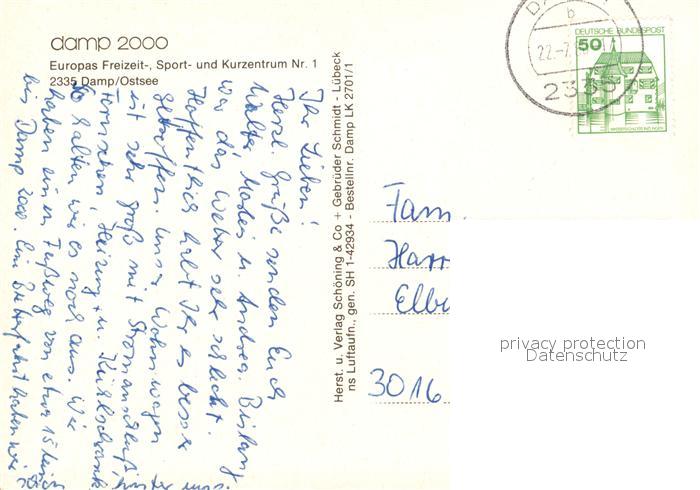 damp 2000
Europas Freizeit-, Sport- und Kurzentrum Nr. 1
2335 Damp/Ostsee
Ihr Lieben!
Herzl. Grüße senden Euch
Walter, u. Andrea. Bislang
war das Wetter sehr schlecht.
Hoffentlich habt Ihr es besser
getroffen. Unser Wohnwagen
ist sehr groß mit Stromanschluß,
Fernsehen, Heizung u. Kühlschrank.
So halten wir es noch aus. Wir
haben einen Fußweg von etwa 15 Min
bis Damp 2000. Eine haben wir
hinter uns
Herst. u. Verlag Schöning & Co + Gebrüder Schmidt - Lübeck
ns Luftaufn., gen. SH 1-42934 - Bestellnr. Damp LK 2701/1
22.-7.
2335
b
DEUTSCHE BUNDESPOST
50
WASSERSCHLOSS INZLINGEN
Fam.
Harr
Elb
3016
privacy protection
Datenschutz